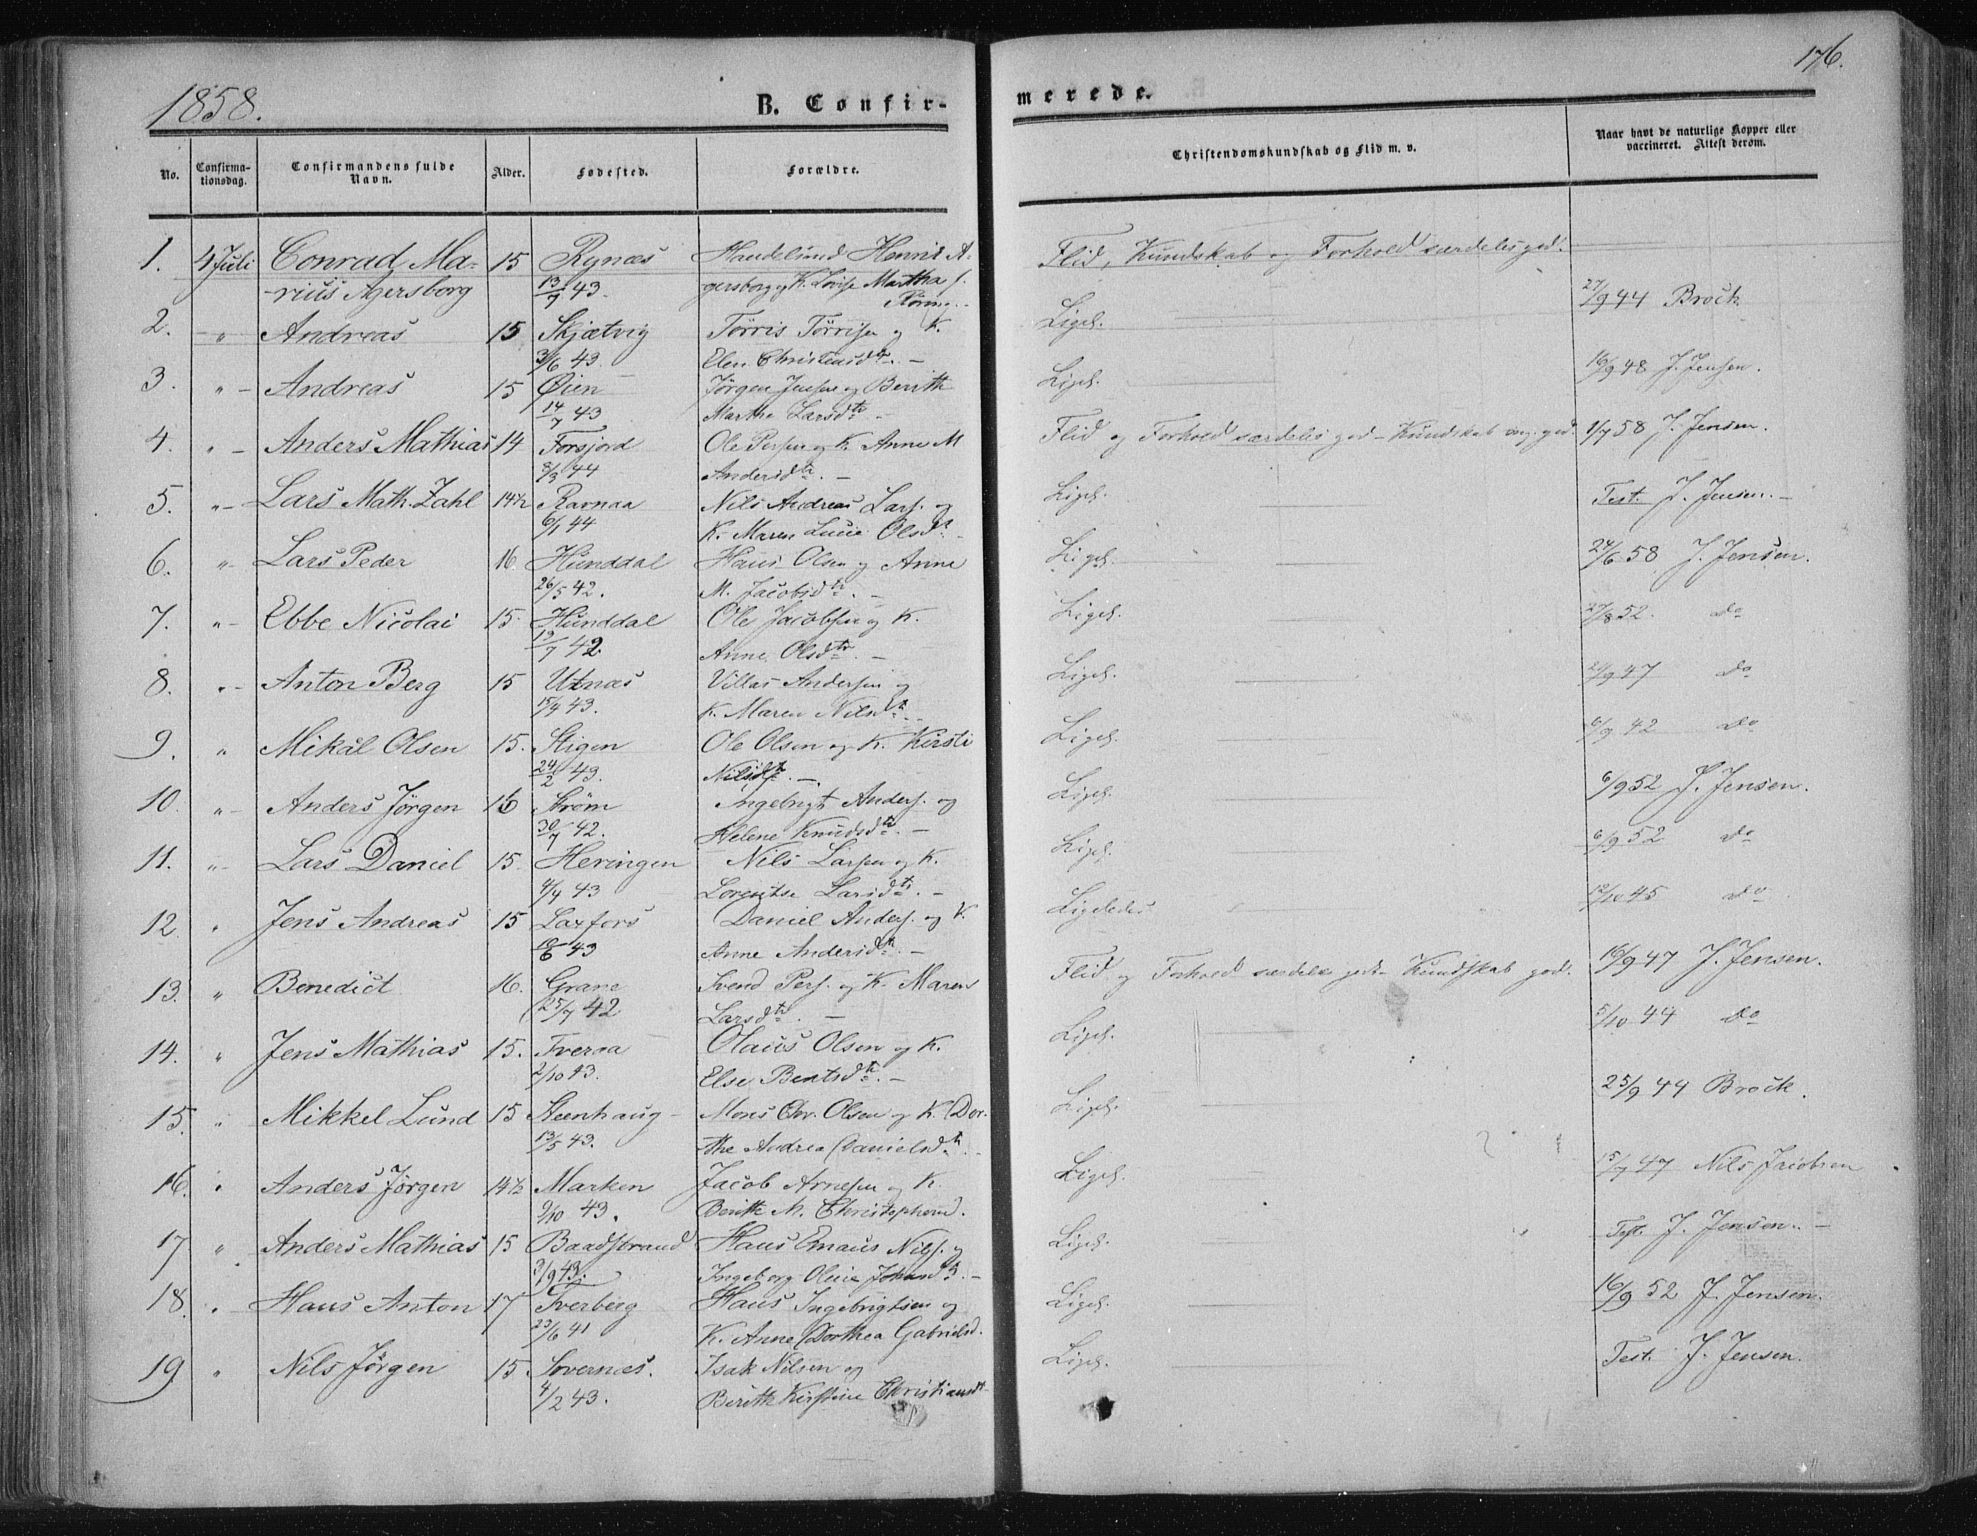 1858.
B. Confir-
No. Confirma-tionsdag. Confirmandens fulde Navn. Alder. Fødested. Forældre.
1. 4 Juli Conrad Ma- 15 Rynæs Handelsmd Henrik A-
rius Agersborg 13/7 43. gersborg og K. Lovise Martha f.
2. " Andreas 15 Skjætvig Tørris Tørrisen og K.
3/6 43. Elen Christensdtr. –
3. " – Andreas 15 Øien Jørgen Jensen og Berith
14/7 43 Marthe Larsdtr –
4. " – Anders Mathias 14 Forsjord Ole Persen og K. Anne M
8/3 44 Andersdtr. –
5. " – Lars Math. Zahl 14½ Ravnaa Nils Andreas Lars. og
6/1 44 K. Maren Lucie Olsdtr. –
6. " Lars Peder 16. Hunddal Hans Olsen og Anne
26/5 42. M. Jacobsdtr. –
7. " – Ebbe Nicolai 15. Hunddal Ole Jacobsen og K.
13/7 42 Anne Olsdtr. –
8. " – Anton Berg 15 Utnæs Villas Andersen og
15/4 43. K. Maren Nilsdtr. –
9. " Mikal Olsen 15. Stigen Ole Olsen og K. Kirsti
24/2 43. Nilsdtr. –
10. " – Anders Jørgen 16 Strøm Ingebrigt Anders. og
30/7 42. Helene Knudsdtr. –
11. " – Lars Daniel 15. Heringen Nils Larsen og K.
4/4 43 Lorentse Larsdtr. –
12. " Jens Andreas 15 Laxfors Daniel Anders. og K.
10/6 43 Anne Andersdtr. –
13. " Benedict 16. Grane Svend Pers. og K. Maren
25/7 42 Larsdtr. –
14. " Jens Mathias 15. Tveraa Olaus Olsen og K.
2/10 43. Else Bentsdtr. –
15. " Mikkel Lund 15 Steenhaug – Mons Chr. Olsen og K. Dor-
13/5 43. the Andrea Danielsdtr. –
16. " Anders Jørgen 14½ Marken Jacob Arnesen og K.
9/10 43. Berith M. Christophersd.
17 " Anders Mathias 15 Baadstrand Hans Emaus Nils. og
3/9 43. Ingeborg Oline Johansdtr. –
18. " Hans Anton 17 Tverberg Hans Ingebrigtsen og
23/6 41 K. Anne Dorthea Gabrielsd.
19 " Nils Jørgen 15 Sovernæs. Isak Nilsen og
4/2 43. Berith Kirstine Christiansdtr
176.
merede.
Christendomskundskab og Flid m. v. Naar havt de naturlige Kopper eller vaccineret. Attest derom.
Flid, Kundskab og Forhold særdeles god.
Ligel. 27/9 44 Brock
Ligel. 16/9 48 J. Jensen.
Flid og Forhold særdeles god – Kundskab meg. god. 1/7 58 J. Jensen.
Ligel. Test. J. Jensen. –
Ligel. 24/6 58 J. Jensen.
Ligel. 27/8 52. do
Ligel. 24/9 47 do
Ligel. 6/9 42 do
Ligel. 6/9 52 J. Jensen.
Ligel. 6/9 52 do
Ligeledes 12/10 45 do
Flid og Forhold særdeles god – Kundskab god. 16/9 47 J. Jensen.
Ligel. 5/10 44 do
Ligel. 25/9 44 Brock.
Ligel. 15/7 47 Nils Jacobsen
Ligel. Test. J. Jensen. –
Ligel. 16/9 52 J. Jensen.
Ligel. Test. J. Jensen.